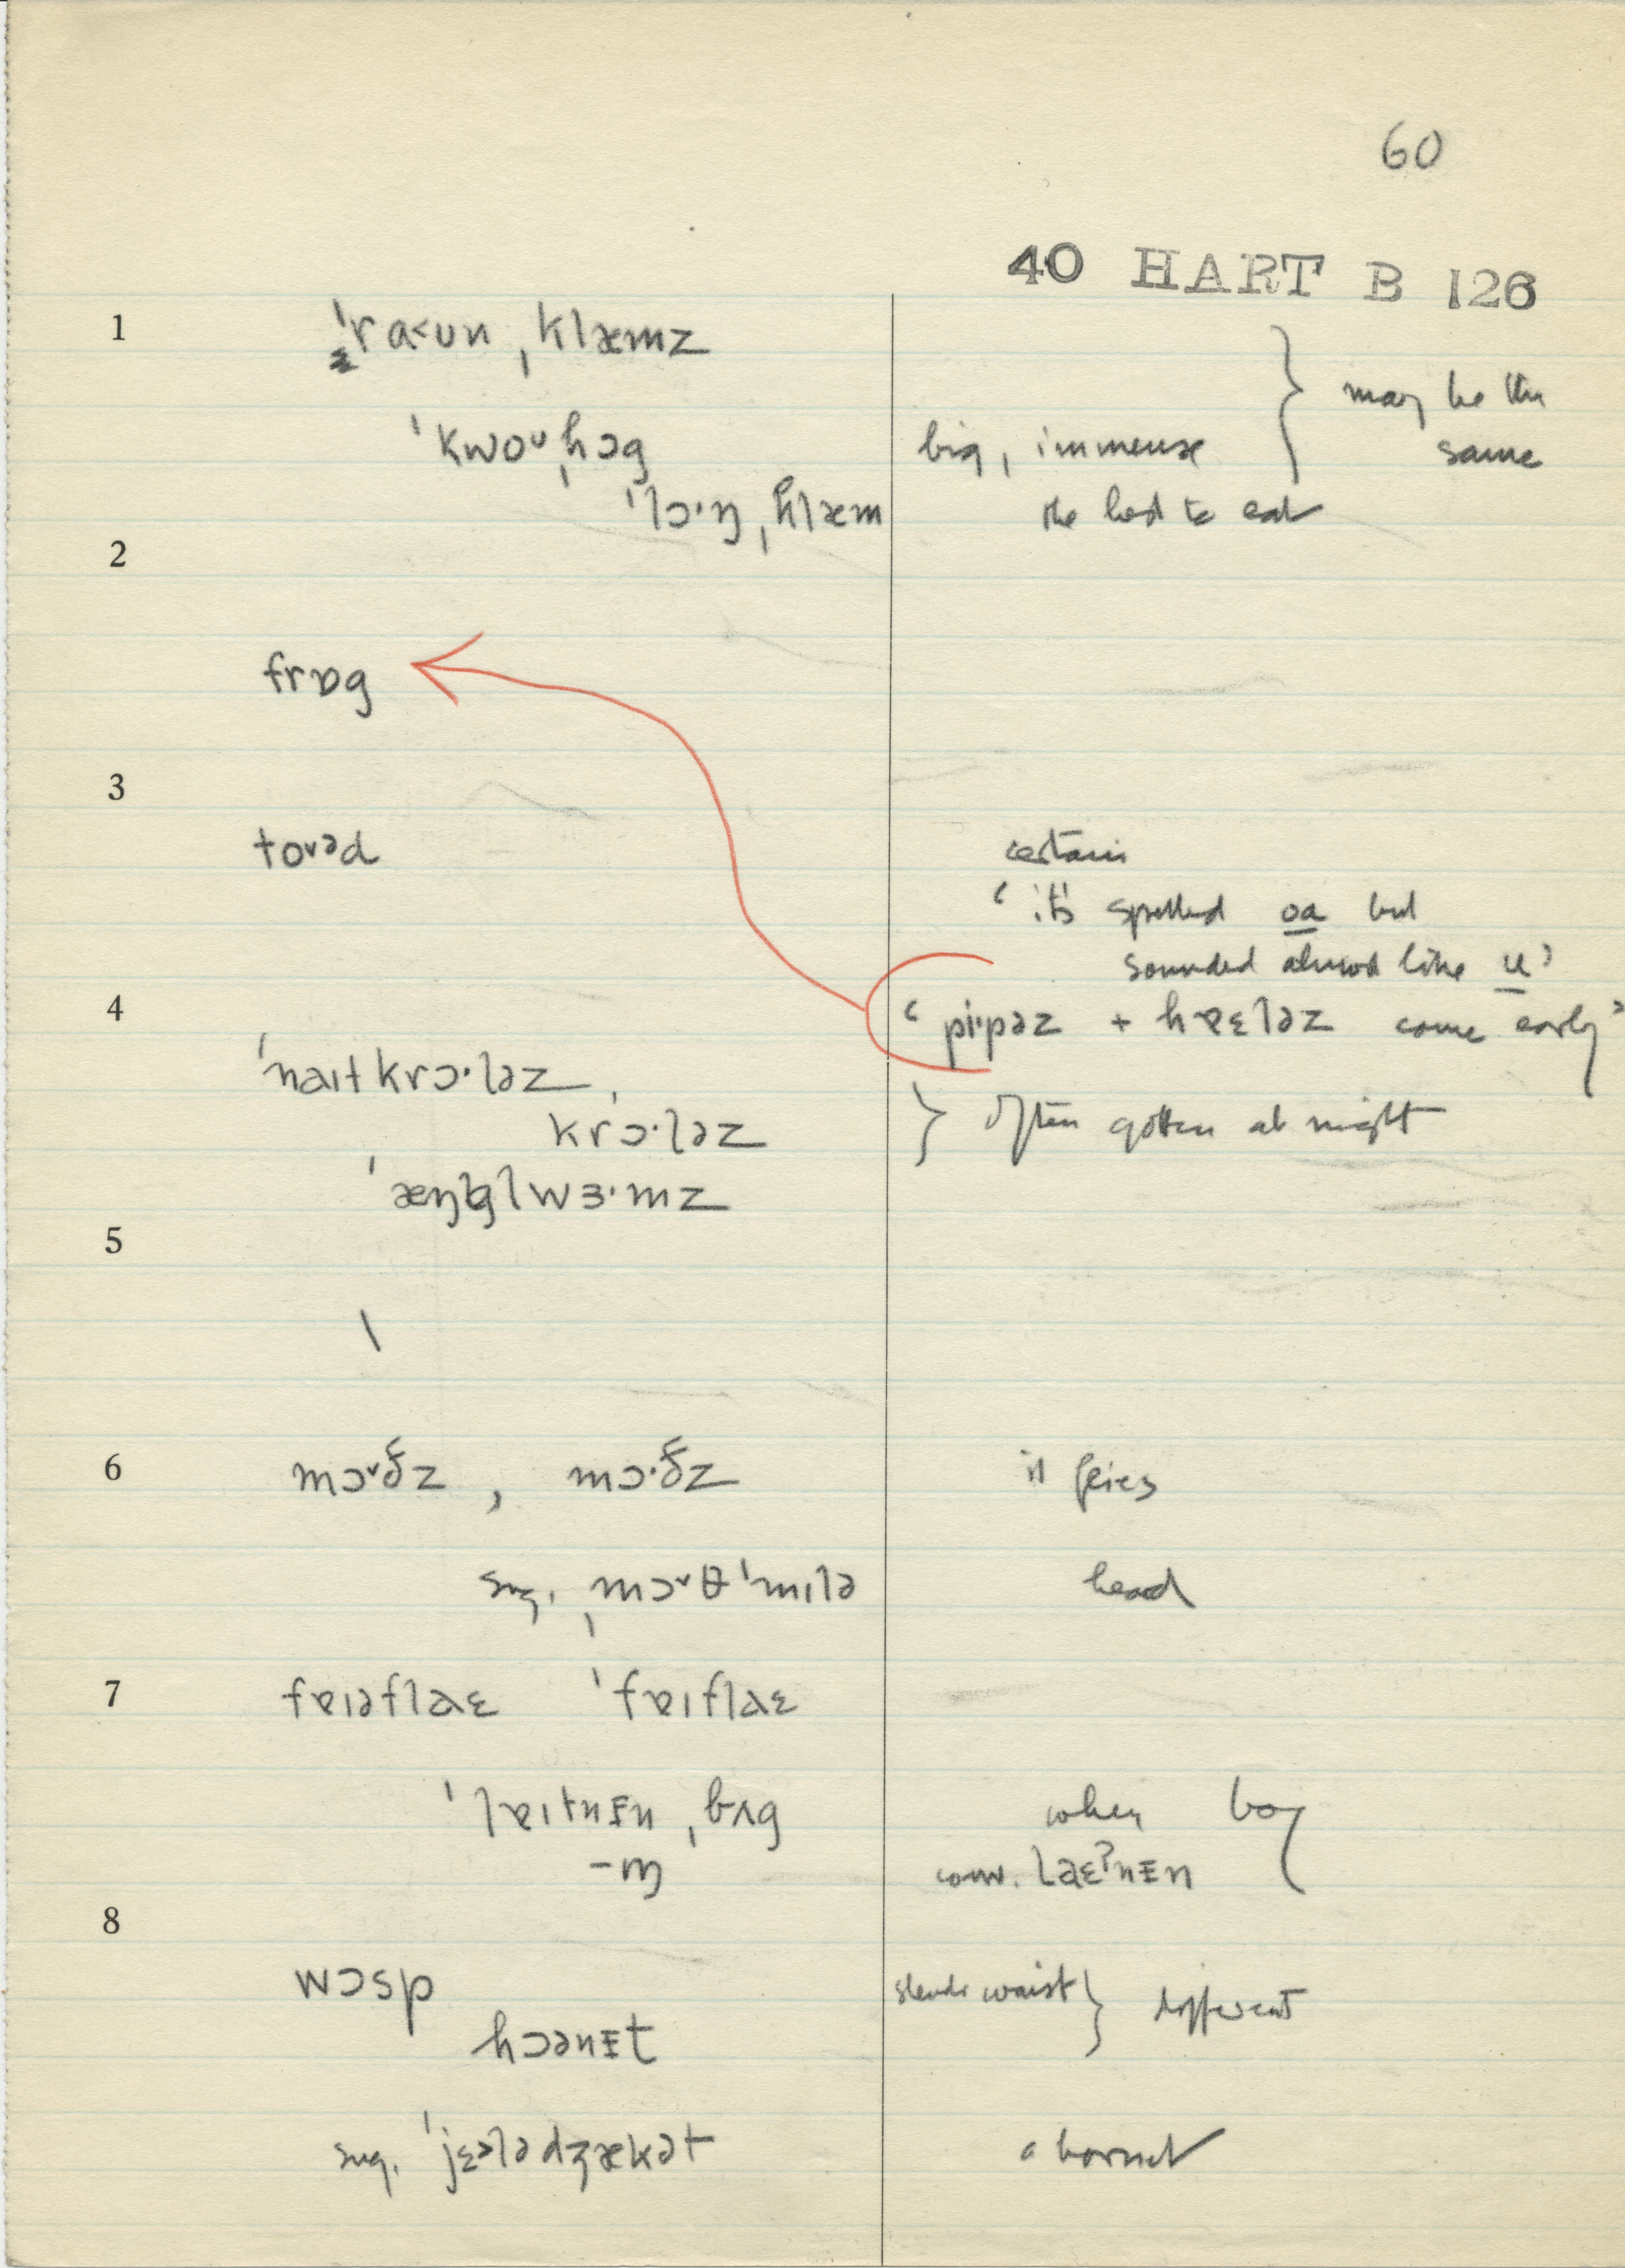 60
40 HART B 126
1 ˈra<ʊn ˌklæmz
ˈkwoᶷˌhɔg big, immense } may be the same
ˈlɔ·ŋ ˌklæm
2 frɒg
3 toᵛəd certain
‘it's spelled oa but
sounded almost like u’
4 ‘pi·pəz + hɐɛləz come early’
ˈnaɪtkrɔ·ləz
ˌkrɔ·ləz } often gotten at night
ˈæŋglwɜ·mz
5
6 mɔᵛðz , mɔ·ðz in flies
sug. ˌmɔᵛθˈmɪlə heard
7 fɐɪəflaɛ ˈfɐɪflaɛ
ˈlɐɪtnɪn ˌbʌg when boy
-ŋ conv. laɛʔnɪn
8 wɔsp slender waist } different
hɔənɪt
sug. ˈjɛ>lədʒækət a hornet